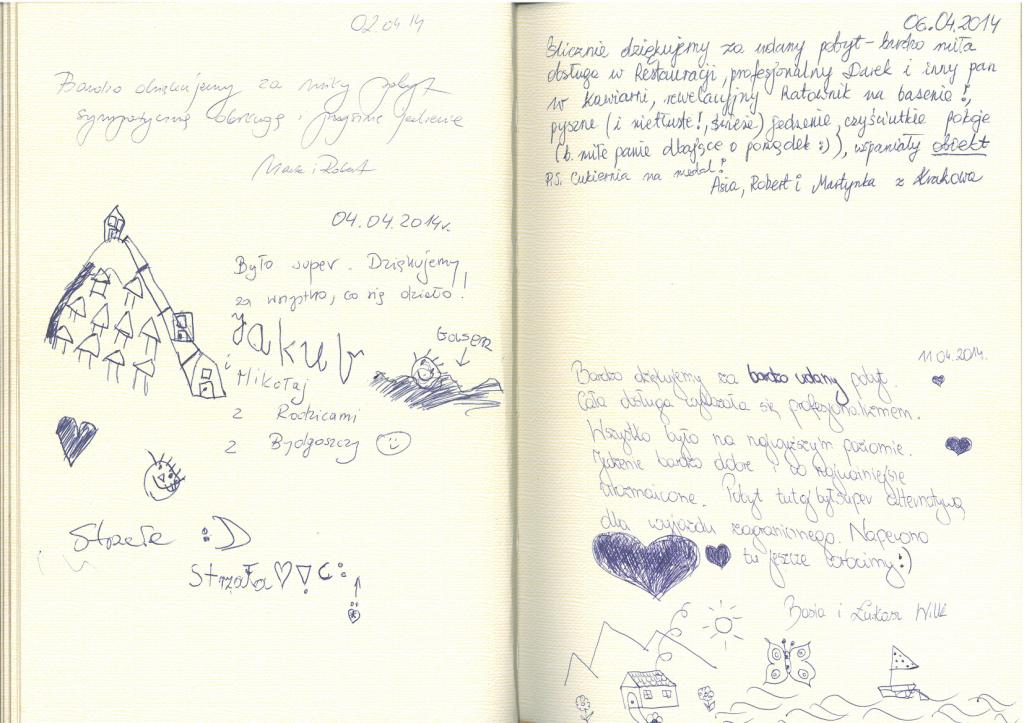 02.04 14
Bardzo dziękujemy za miły pobyt
sympatyczną obsługę i pyszne jedzenie
i Robert
04.04.2014r.
Było super. Dziękujemy
za wszystko, co się działo!
Jakub
i Mikołaj
z Rodzicami
z Bydgoszczy
Strzała :D
Strzała
06.04.2014
Ślicznie dziękujemy za udany pobyt - bardzo miła
obsługa w Restauracji, profesjonalny Darek i inny pan
w kawiarni, rewelacyjny Ratownik na basenie!,
pyszne (i nietłuste!, świeże) jedzenie, czyściutkie pokoje
(b. miłe panie dbające o porządek :)), wspaniały obiekt
P.S. Cukiernia na medal!
Asia, Robert i Martynka z Krakowa
11.04.2014.
Bardzo dziękujemy za bardzo udany pobyt.
Cała obsługa wykazała się profesjonalizmem.
Wszystko było na najwyższym poziomie.
Jedzenie bardzo dobre i co najważniejsze
urozmaicone. Pobyt tutaj był super alternatywą
dla wyjazdu zagranicznego. Napewno
tu jeszcze wrócimy :)
Basia i Łukasz Wilk